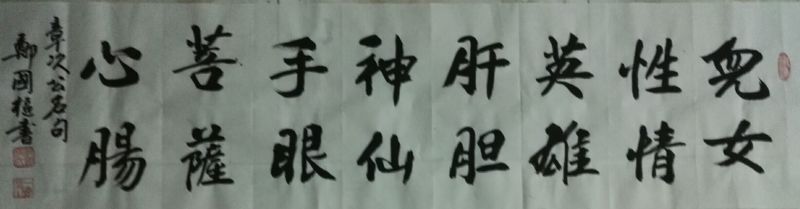 兒女
性情
英雄
肝胆
神仙
手眼
菩薩
心腸
章次公名句
鄭國樞書